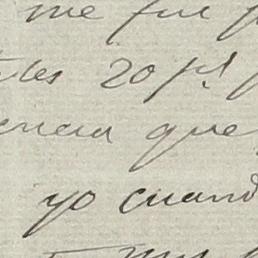 me fui p
tes 20 p.s
encia que
yo cuand